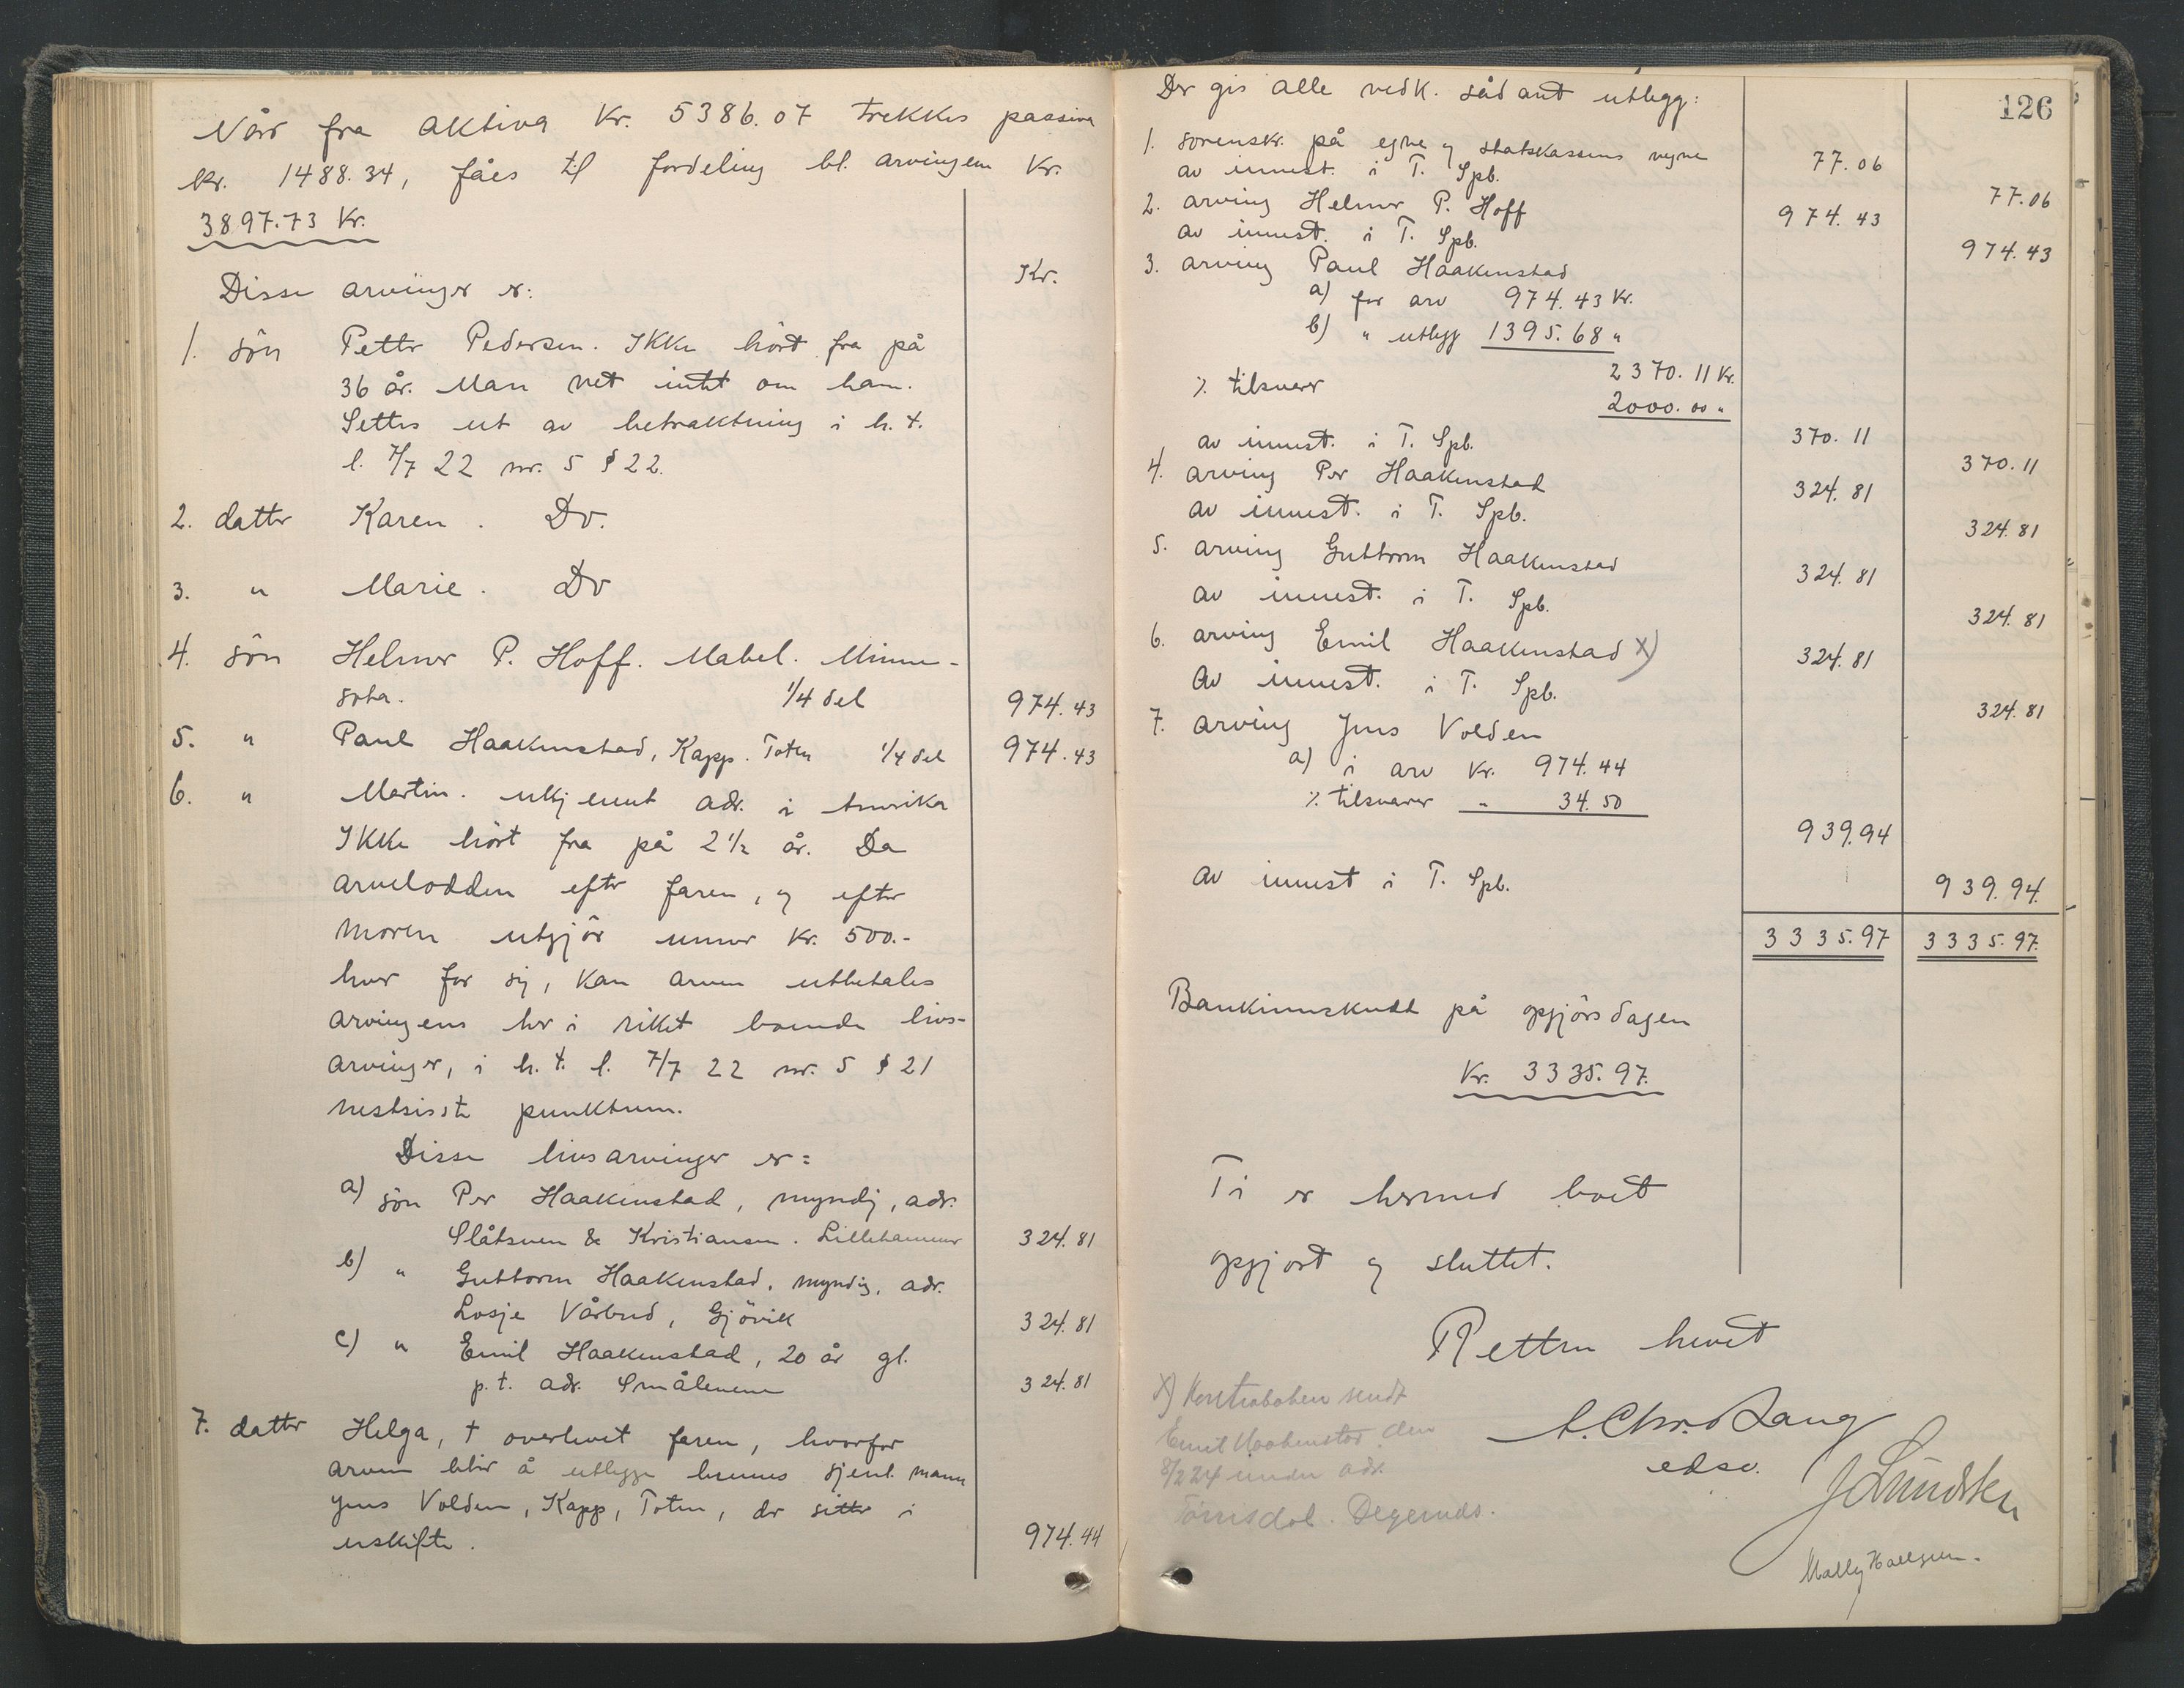 Når fra aktiva kr. 5386.07 trekkes passiva
kr. 1488.34, fåes til fordeling bl. arvingene kr.
3897.73 kr.
Kr.
Disse arvinger er:
1. sön Petter Pedersen. Ikke hört fra på
36 år. Man vet intet om ham.
Settes ut av betraktning i h.t.
l. 7/7 22 nr. 5 § 22.
2. datter Karen. Do.
3. " Marie. Do
4. sön Helmer P. Hoff. Mabel. Minne-
sota. 1/4 del 974.43
5. " Paul Haakenstad, Kapp. Toten 1/4 del 974.43
6. " Martin. ukjent adr. i Amerika
Ikke hört fra på 2 1/2 år. Da
arvelodden efter faren, og efter
moren utgjör under kr. 500.-
hver for sig, kan arven utbetales
arvingens her i riket boende livs-
arvinger, i h.t. l. 7/7 22 nr. 5 § 21
nestsiste punktum.
Disse livsarvinger er:
a) sön Per Haakenstad, myndig, adr.
Slåtsveen & Kristiansen. Lillehammer 324.81
b) " Guttorm Haakenstad, myndig, adr.
Losje Vårbud, Gjövik 324.81
c) " Emil Haakenstad, 20 år gl.
p.t. adr. Smålenene 324.81
7. datter Helga, † overlevet faren, hvorfor
arven blir å utlegge hennes gjenl. mann
Jens Volden, Kapp, Toten, der sitter i
uskifte. 974.44
126
Der gis alle vedk. sådant utlegg:
1. sorenskr. på egne og statskassens vegne 77.06
av innest. i T. Spb. 77.06
2. arving Helmer P. Hoff 974.43
av innest. i T. Spb. 974.43
3. arving Paul Haakenstad
a) for arv 974.43 kr.
b) " utlegg 1395.68 "
2370.11 kr.
% tilsvarer 2000.00 "
370.11
av innest. i T. Spb. 370.11
4. arving Per Haakenstad 324.81
av innest. i T. Spb. 324.81
5. arving Guttorm Haakenstad 324.81
av innest. i T. Spb. 324.81
6. arving Emil Haakenstad x) 324.81
av innest. i T. Spb. 324.81
7. arving Jens Volden
a) i arv kr. 974.44
% tilsvarer " 34.50
939.94
av innest i T. Spb. 939.94.
3335.97 3335.97.
Bankinnskudd på opgjörsdagen
kr. 3335.97.
Ti er hermed boet
opgjort og sluttet.
Retten hevet
A. Chr. Bang
edsv.
x) Kontraboken sendt
Emil Haakenstad den
8/2 24 under adr.
Degernds.